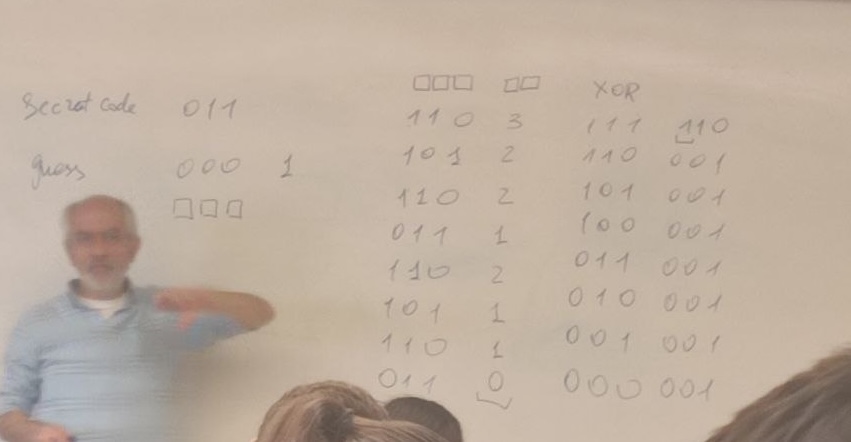 Secret Code 011
guess 000 1
□□□ □□ XOR
110 3 111 110
101 2 110 001
110 2 101 001
011 1 100 001
110 2 011 001
101 1 010 001
110 1 001 001
011 0 000 001